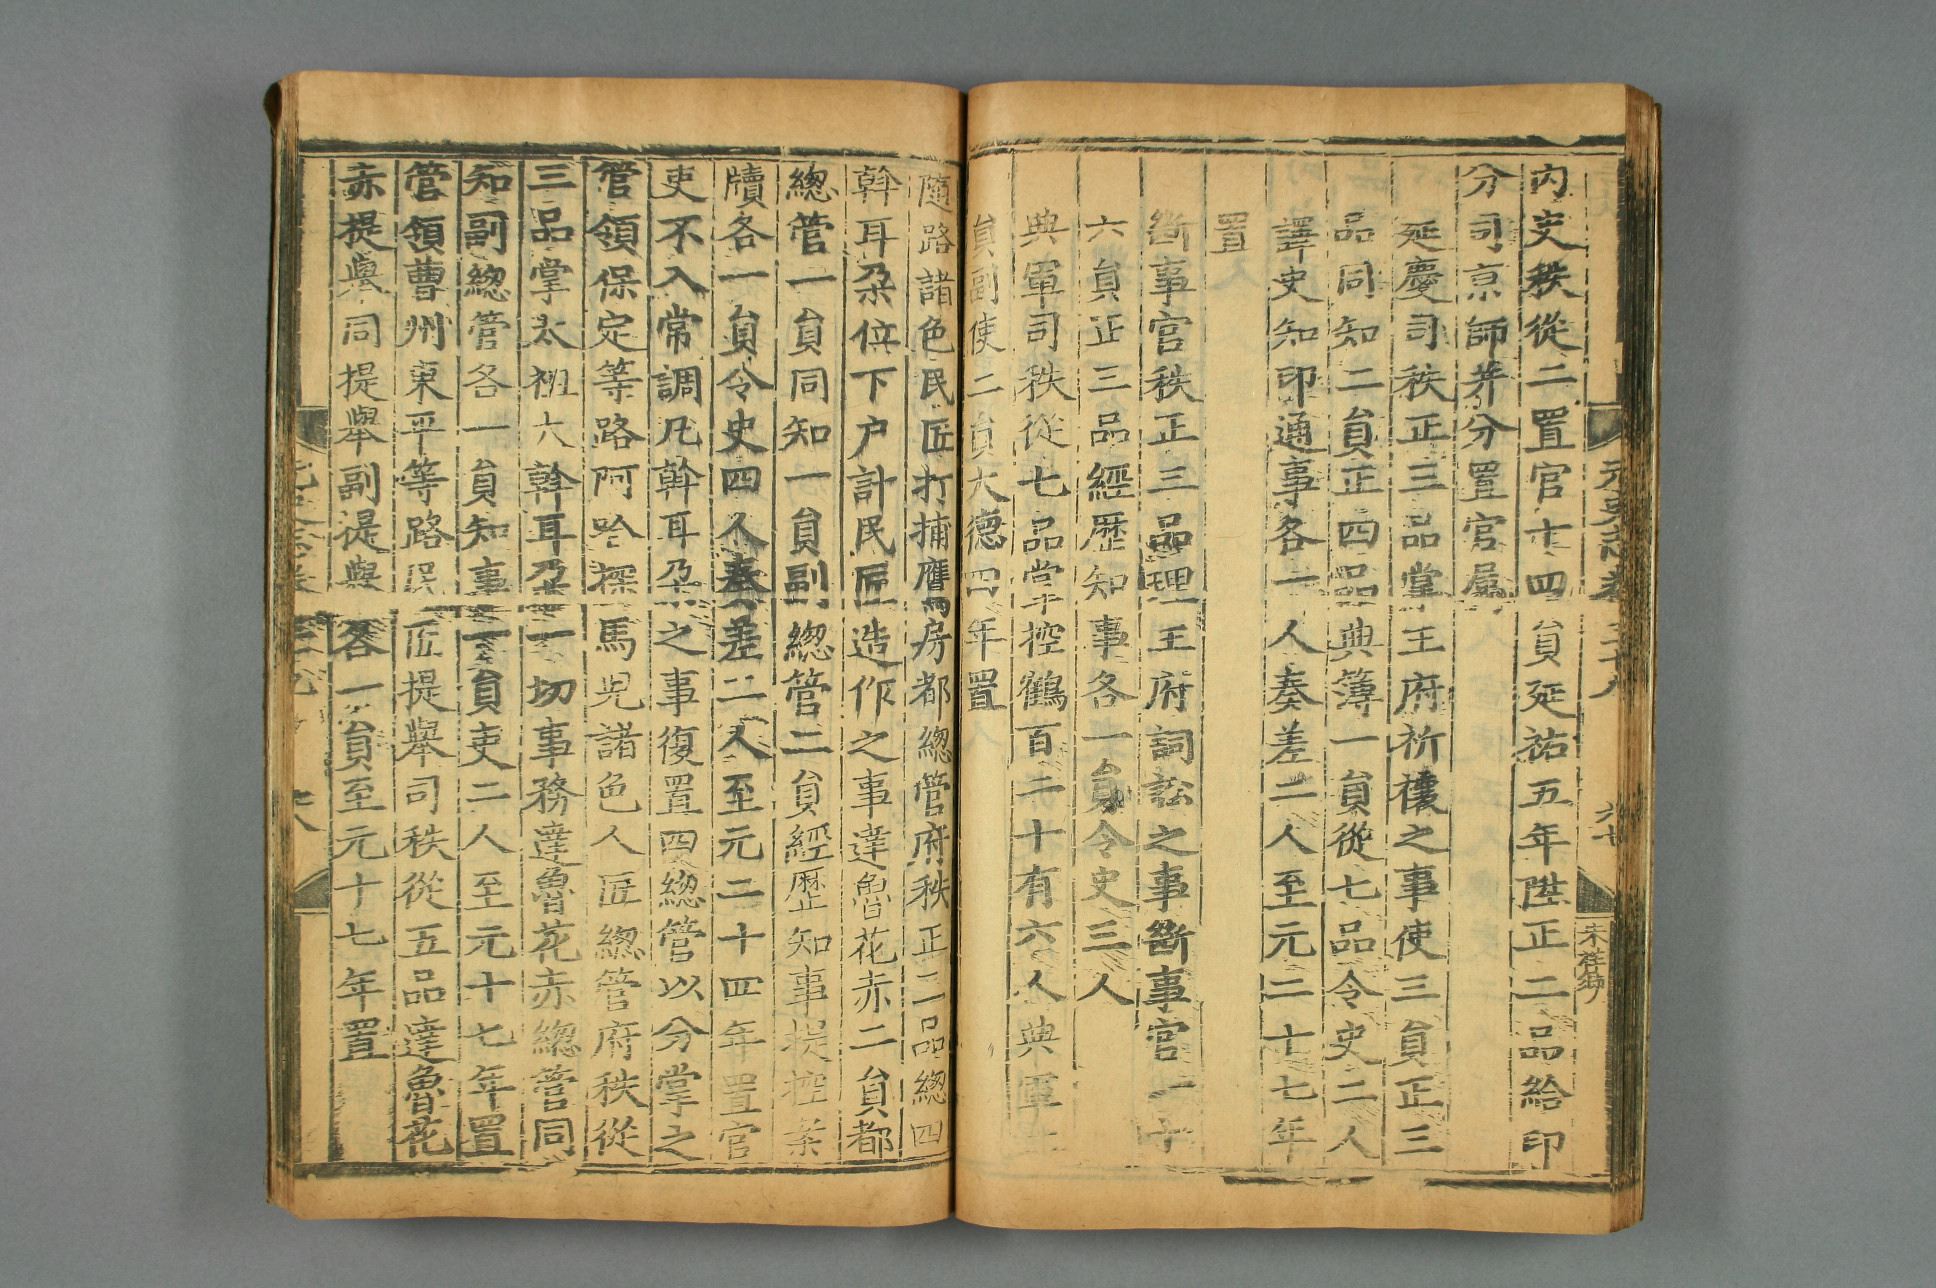 元史志卷三十八
六十七
内史秩從二置官十四員延祐五年陞正二品給印
分司京師并分置官屬
延慶司秩正三品掌王府祈禳之事使三員正三
品同知二員正四品典簿一員從七品令史二人
譯史知印通事各一人奏差二人至元二十七年
置
斷事官秩正三品理王府詞訟之事斷事官一十
六員正三品經歷知事各一員令史三人
典軍司秩從七品掌控鶴百二十有六人典軍二
員副使二員大德四年置
隨路諸色民匠打捕鷹房都總管府秩正二品總四
斡耳朶位下户計民匠造作之事達魯花赤二員都
總管一員同知一員副總管二員經歷知事提控案
牘各一員令史四人奏差二人至元二十四年置官
吏不入常調凡斡耳朶之事復置四總管以分掌之
管領保定等路阿哈探馬兒諸色人匠總管府秩從
三品掌太祖大斡耳朶一切事務達魯花赤總管同
知副總管各一員知事一員吏二人至元十七年置
管領曹州東平等路民匠提舉司秩從五品達魯花
赤提舉同提舉副提舉各一員至元十七年置